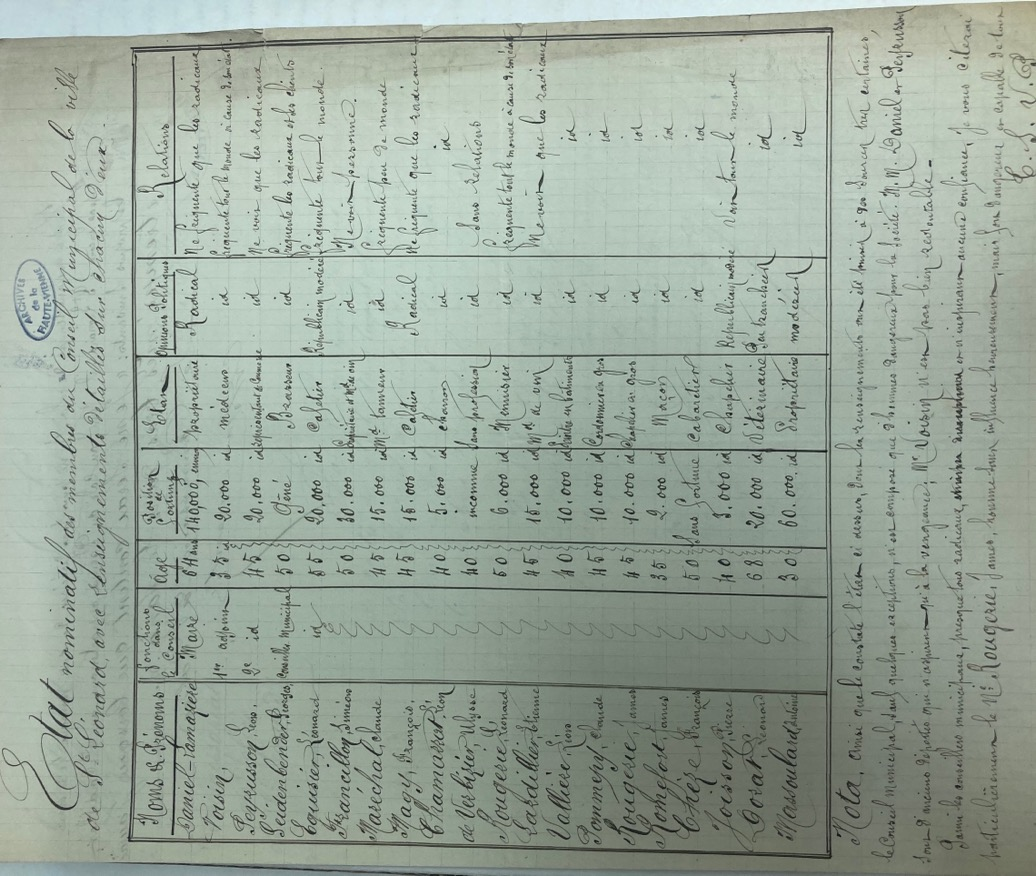 ARCHIVES
de la
HAUTE-VIENNE
État nominatif des membres du Conseil Municipal de la ville
de St Léonard avec renseignements détaillés sur chacun d'eux.
Noms & Prénoms Fonctions dans le Conseil Age Position de Fortune Etat Opinions Politiques Relations
Daniel-Lamazière Maire 64 ans propriétaire Radical Ne fréquente que les radicaux
Voisin, 1er adjoint 35 id 20.000 id médecin id fréquente tout le monde à cause de son état
Pergusson 2e id 45 20.000 id id Ne voit que les radicaux
Georges, Conseiller Municipal 50 Géné Brasseur id fréquente les radicaux et ses clients
Léonard id 55 20.000 id Cafetier Républicain modéré fréquente tout le monde.
Francillon, Siméon 50 30.000 id id Ne voit personne.
Maréchal, Claude 45 15.000 id Md tanneur id fréquente peu de monde
François, 45 15.000 id Cafetier Radical Ne fréquente que les radicaux
Clamaron Léon 40 5.000 id charron id id
de Verbizier, Ulysse 40 inconnue sans profession id Sans relations
Rougerie Léonard 50 6.000 id Menuisier id fréquente tout le monde à cause de son état
Lardillier Etienne 45 15.000 id Md de vin id Ne voit que les radicaux
Vallière Léon 40 10.000 id id id
Pommery, Claude 45 10.000 id id id
Rougerie, James 45 10.000 id id id
Romefort James 35 2.000 id Maçon id id
Chèze, François 50 Sans fortune Cabaretier id id
Pierre 40 3.000 id Chapelier Républicain modéré Voit tout le monde
Dorat Léonard 68 20.000 id Vétérinaire id
Massoulard Antoine 30 60.000 id Propriétaire modéré id
Nota, ainsi que le constate l'état ci dessus, dont les renseignements ont été puisés à des sources très certaines,
le Conseil municipal, sauf quelques exceptions, n'est composé que d'hommes dangereux pour la société. M.M. Daniel et Pergusson
sont d'anciens déportés qui n'aspirent qu'à la vengeance; Mr Voisin n'est pas bien redoutable.
Parmi les conseillers municipaux, presque tous radicaux, et n'inspirant aucune confiance, je vous citerai
particulièrement le Né Rougerie, James, homme sans influence heureusement, mais fort dangereux et capable de tout
T. S. V. P.